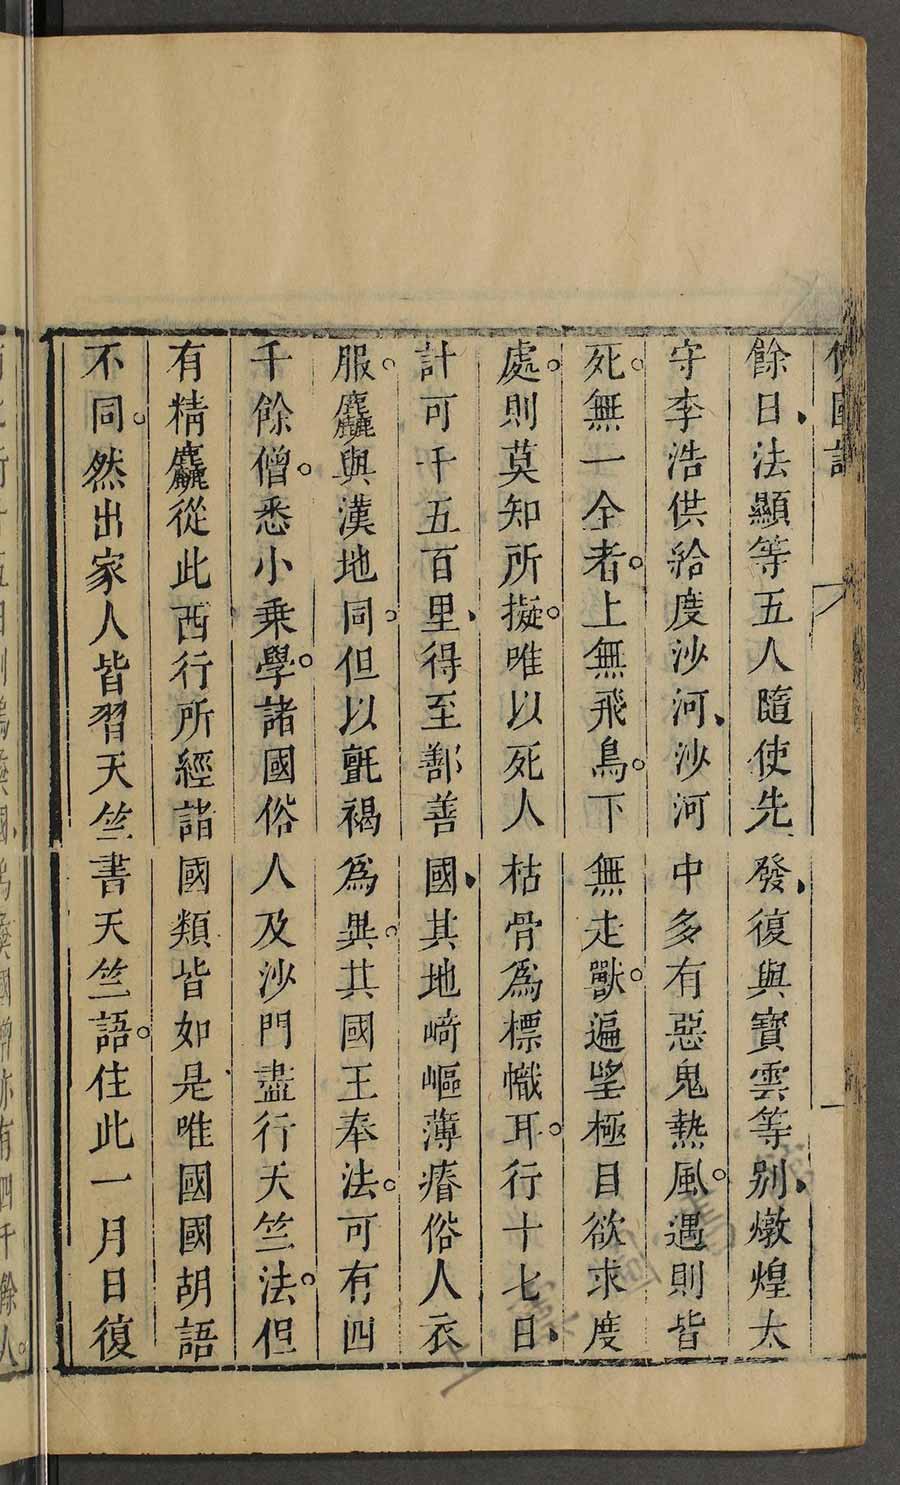 佛國記
餘日、法顯等五人隨使先發、復與寶雲等別、燉煌太
守李浩供給度沙河、沙河中多有惡鬼熱風。遇則皆
死。無一全者。上無飛鳥。下無走獸。遍望極目欲求度
處。則莫知所擬。唯以死人枯骨爲標幟耳。行十七日、
計可千五百里、得至鄯善國、其地崎嶇薄瘠俗人衣
服。麤與漢地同。但以氈褐爲異。其國王奉法。可有四
千餘僧。悉小乘學。諸國俗人及沙門盡行天竺法。但
有精麤從此西行所經諸國類皆如是唯國國胡語
不同。然出家人皆習天竺書天竺語。住此一月日復